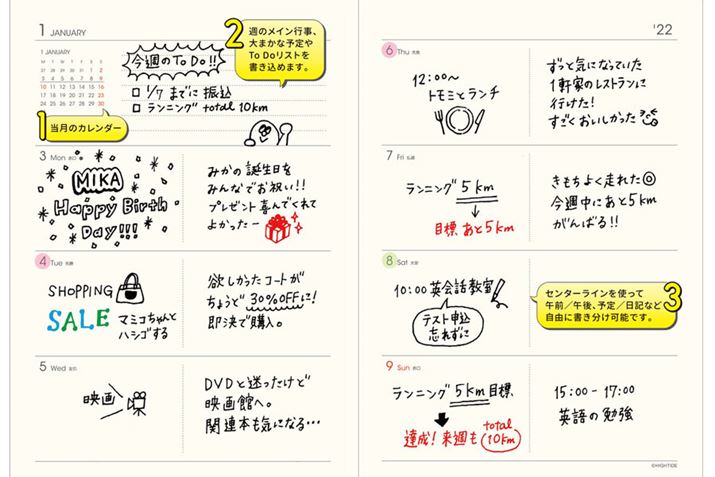 1 JANUARY
1 JANUARY
M T W T F S S
今週のTo Do!!
□ 1/7 までに振込
□ ランニング total 10km
2 週のメイン行事、
大まかな予定や
To Doリストを
書き込めます。
1 当月のカレンダー
3 Mon
MIKA
Happy Birth
Day!!!
みかの誕生日を
みんなでお祝い!!
プレゼント喜んでくれて
よかったー
4 Tue
SHOPPING
SALE マミコちゃんと
ハシゴする
欲しかったコートが
ちょうど30%OFFに!
即決で購入。
5 Wed
映画
DVDと迷ったけど
映画館へ。
関連本も気になる…
'22
6 Thu
12:00～
トモミとランチ
ずっと気になっていた
1軒家のレストランに
行けた!
すごくおいしかった
7 Fri
ランニング 5km
目標 あと5km
きもちよく走れた◎
今週中にあと5km
がんばる!!
8 Sat
10:00 英会話教室
テスト申込
忘れずに
センターラインを使って
午前／午後、予定／日記など
自由に書き分け可能です。 3
9 Sun
ランニング 5km 目標
達成! 来週も total 10km
15:00-17:00
英語の勉強
©HIGHTIDE